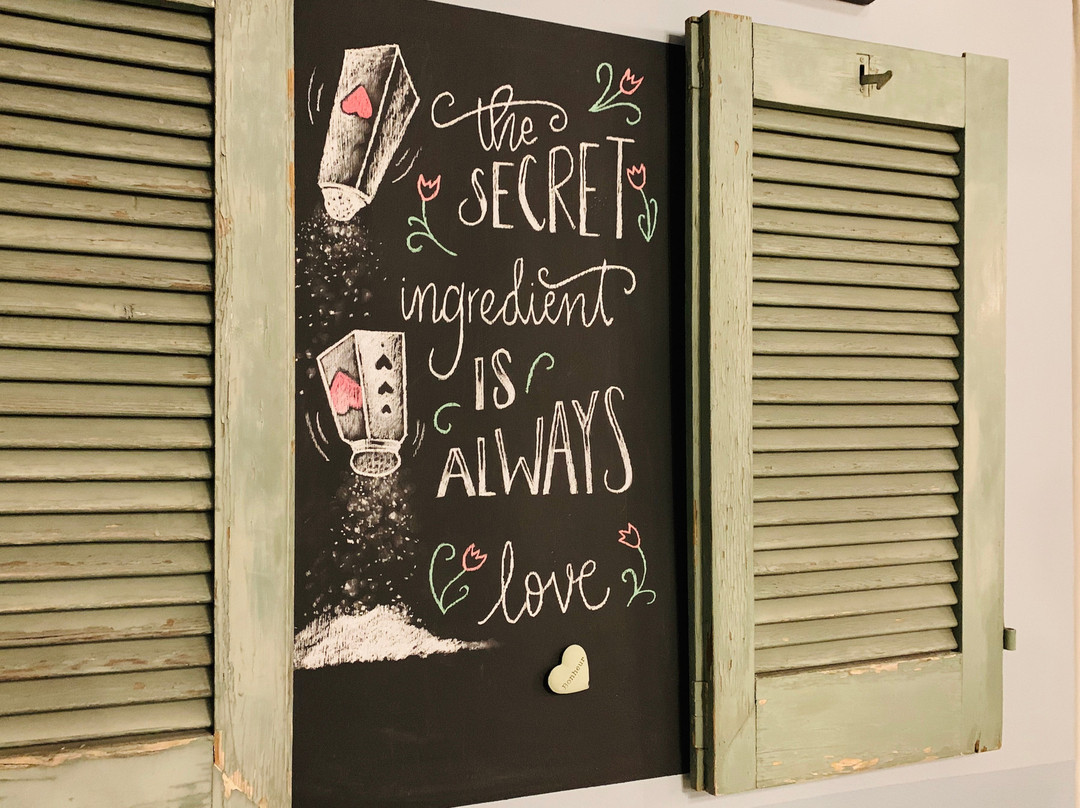 the
SECRET
ingredient
IS
ALWAYS
love
Bonheur